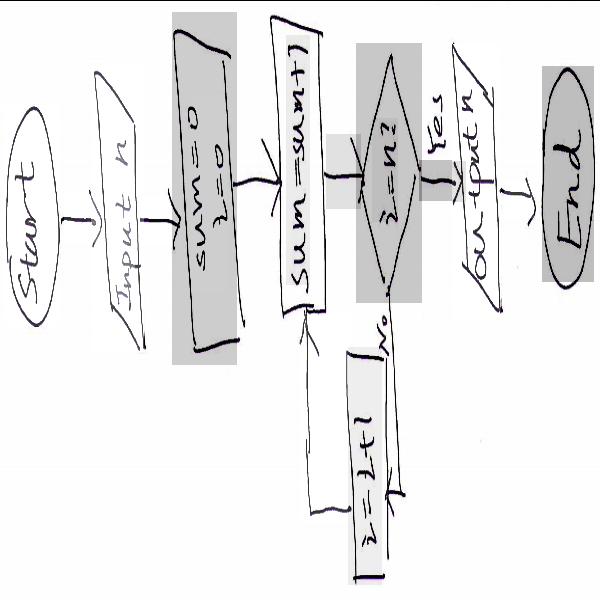 Start
Input n
sum=0
i=0
sum=sum+1
i=n?
Yes
No
i=i+1
output n
End